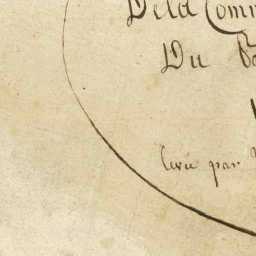 De la Comm
Du
levée par